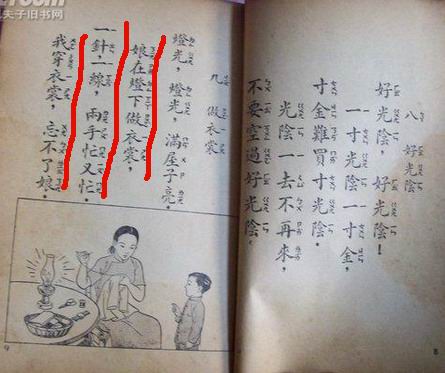 八 好光陰
好光陰，好光陰！
一寸光陰一寸金，
寸金難買寸光陰。
光陰一去不再來，
不要空過好光陰。
8
九 做衣裳
燈光，燈光，滿屋子亮。
娘在燈下做衣裳，
一針一線，兩手忙又忙。
我穿衣裳，忘不了娘。
9
夫子旧书网